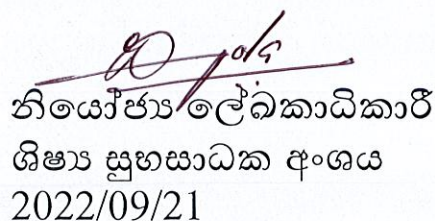 නියෝජ්‍ය ලේඛකාධිකාරී
ශිෂ්‍ය සුභසාධක අංශය
2022/09/21